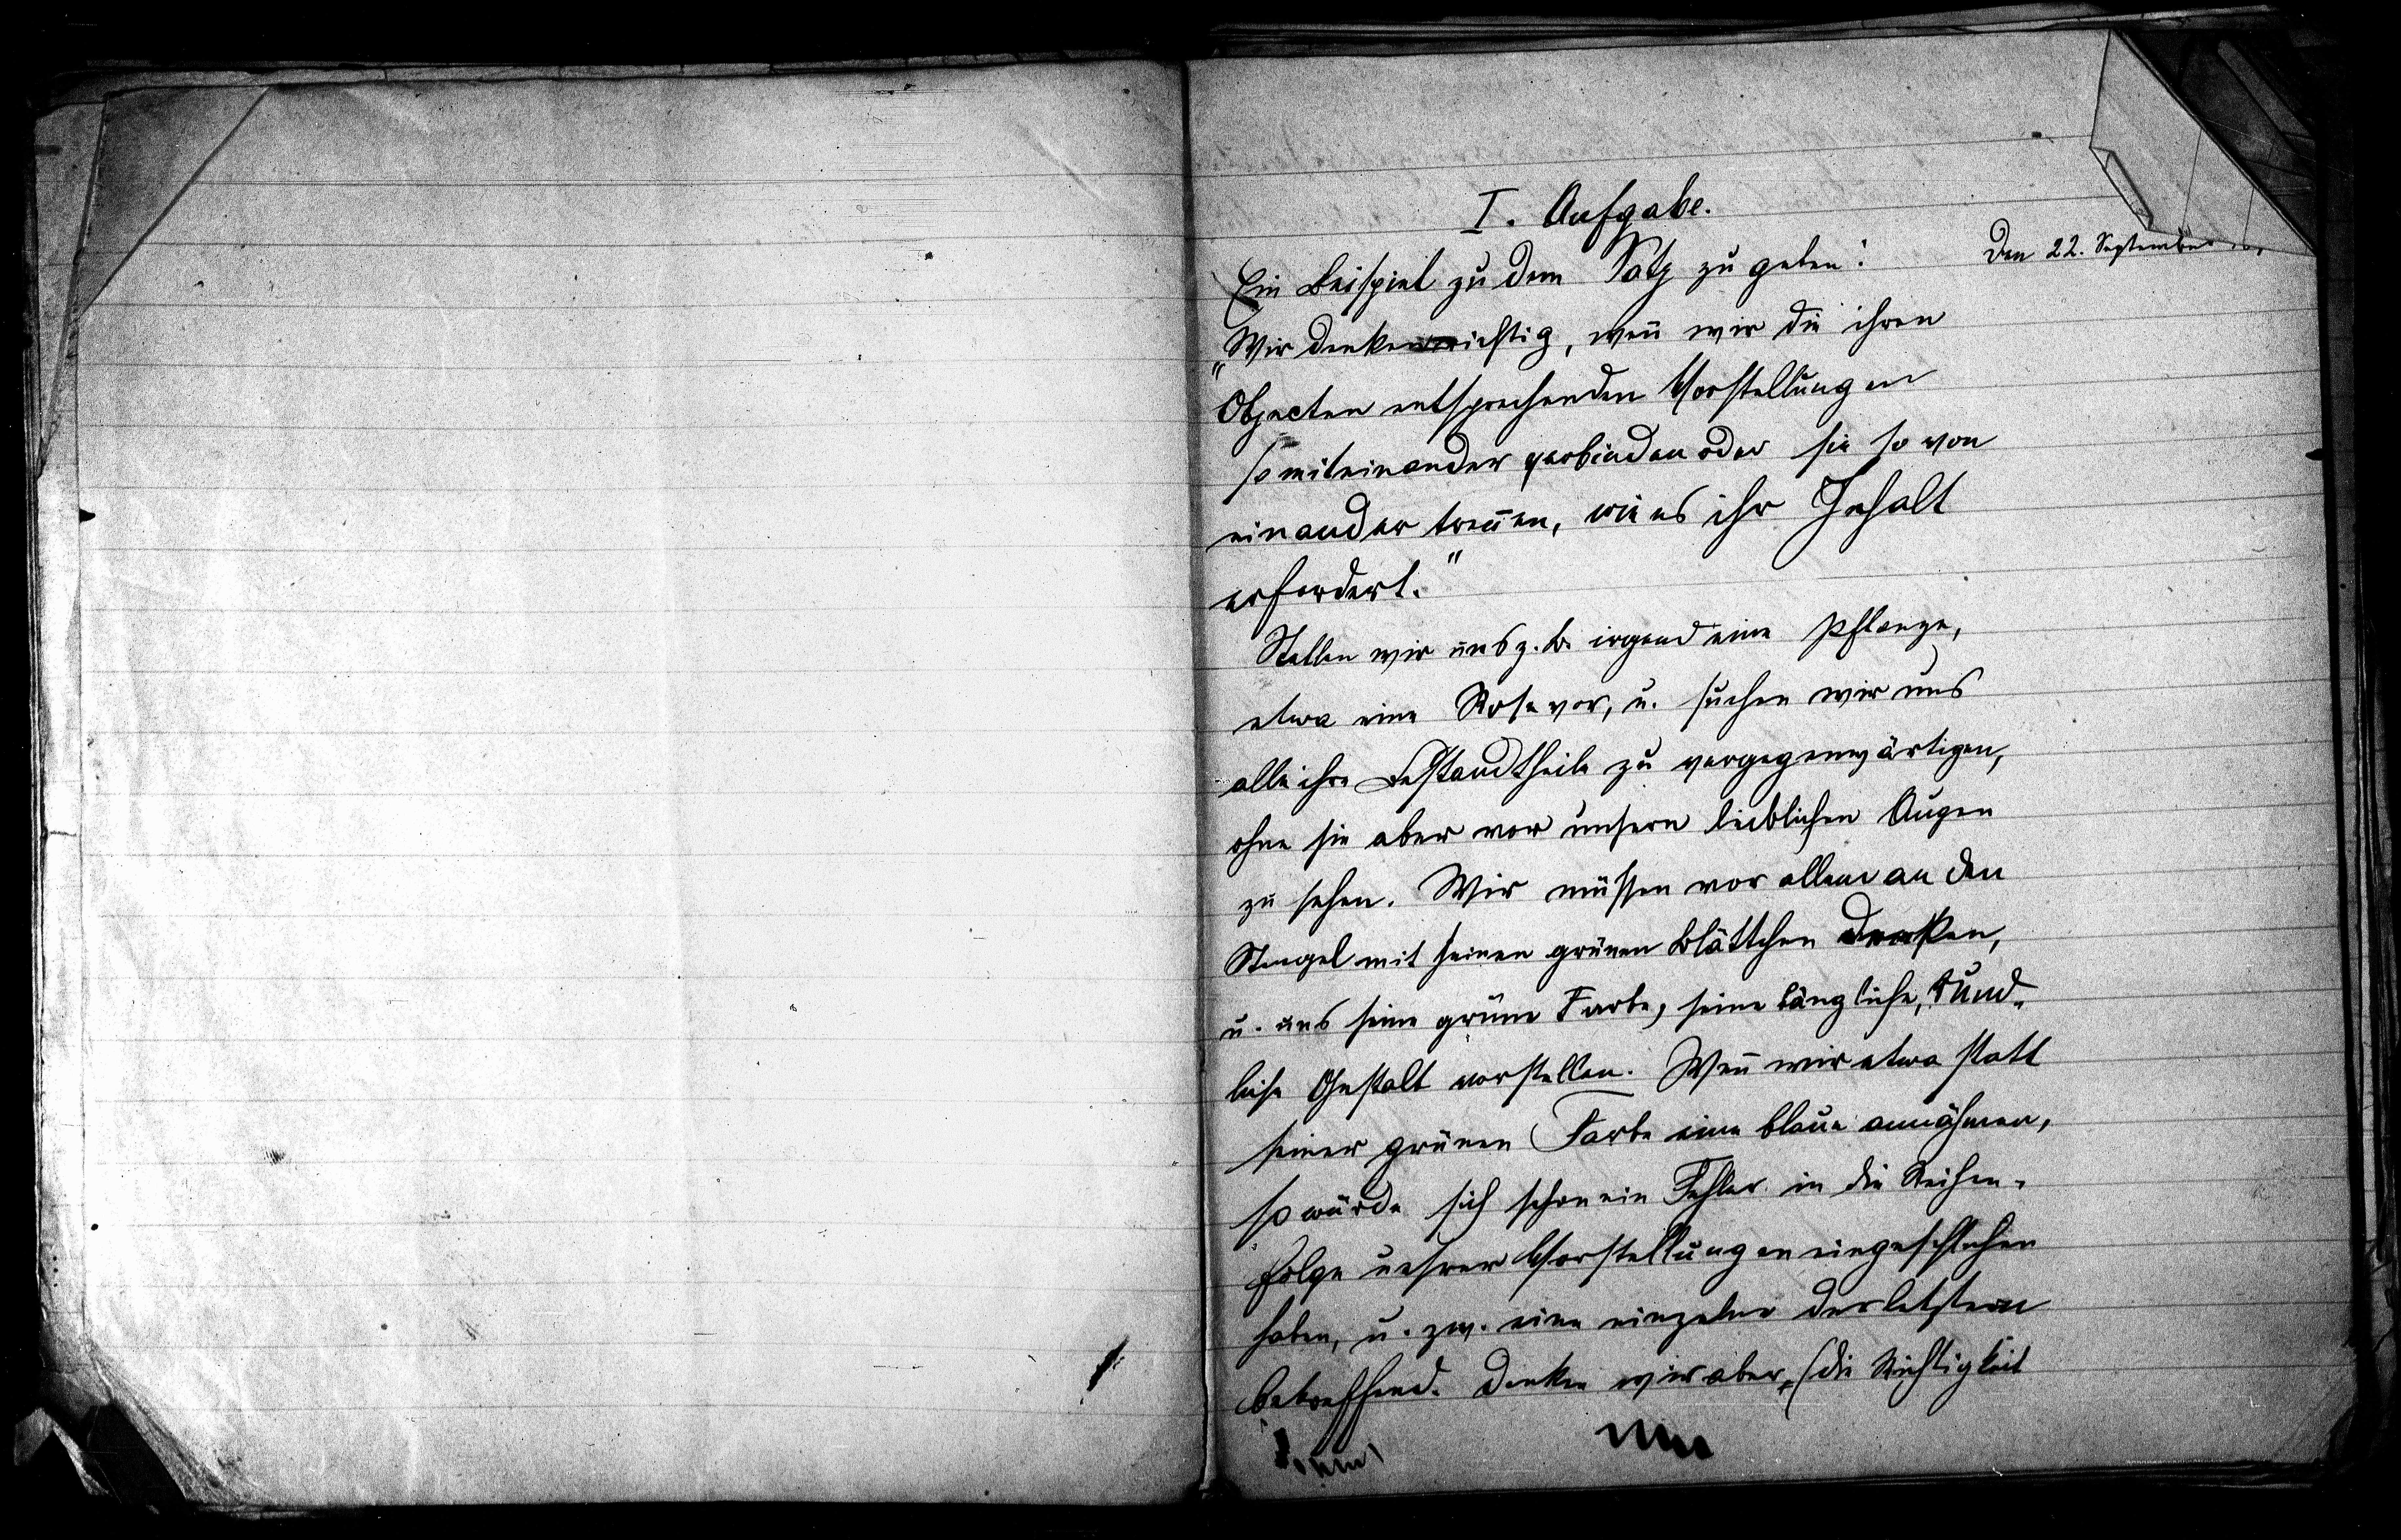 I. Aufgabe.
Den 22. September
Ein Beispiel zu dem Satz zu geben:
„Wir denken richtig, weñ wir die ihren
Objecten entsprechenden Vorstellungen
so miteinander verbinden oder sie so von
einander treñen, wie es ihr Inhalt
erfordert.“
Stellen wir uns z. B. irgend eine Pflanze,
etwa eine Rose vor, u. suchen wir uns
alle ihre Bestandtheile zu vergegenwärtigen,
ohne sie aber vor unsern leiblichen Augen
zu sehen. Wir müssen vor allem an den
Stengel mit seinen grünen Blättchen denken,
u. uns seine grüne Farbe, seine längliche, rund-
liche Gestalt vorstellen. Weñ wir etwa statt
seiner grünen Farbe eine blaue annähmen,
so würde sich schon ein Fehler in die Reihen-
folge unsrer Vorstellungen eingeschlichen
haben, u. zw. eine einzelne der letztern
betreffend. Denken wir aber, (die Richtigkeit